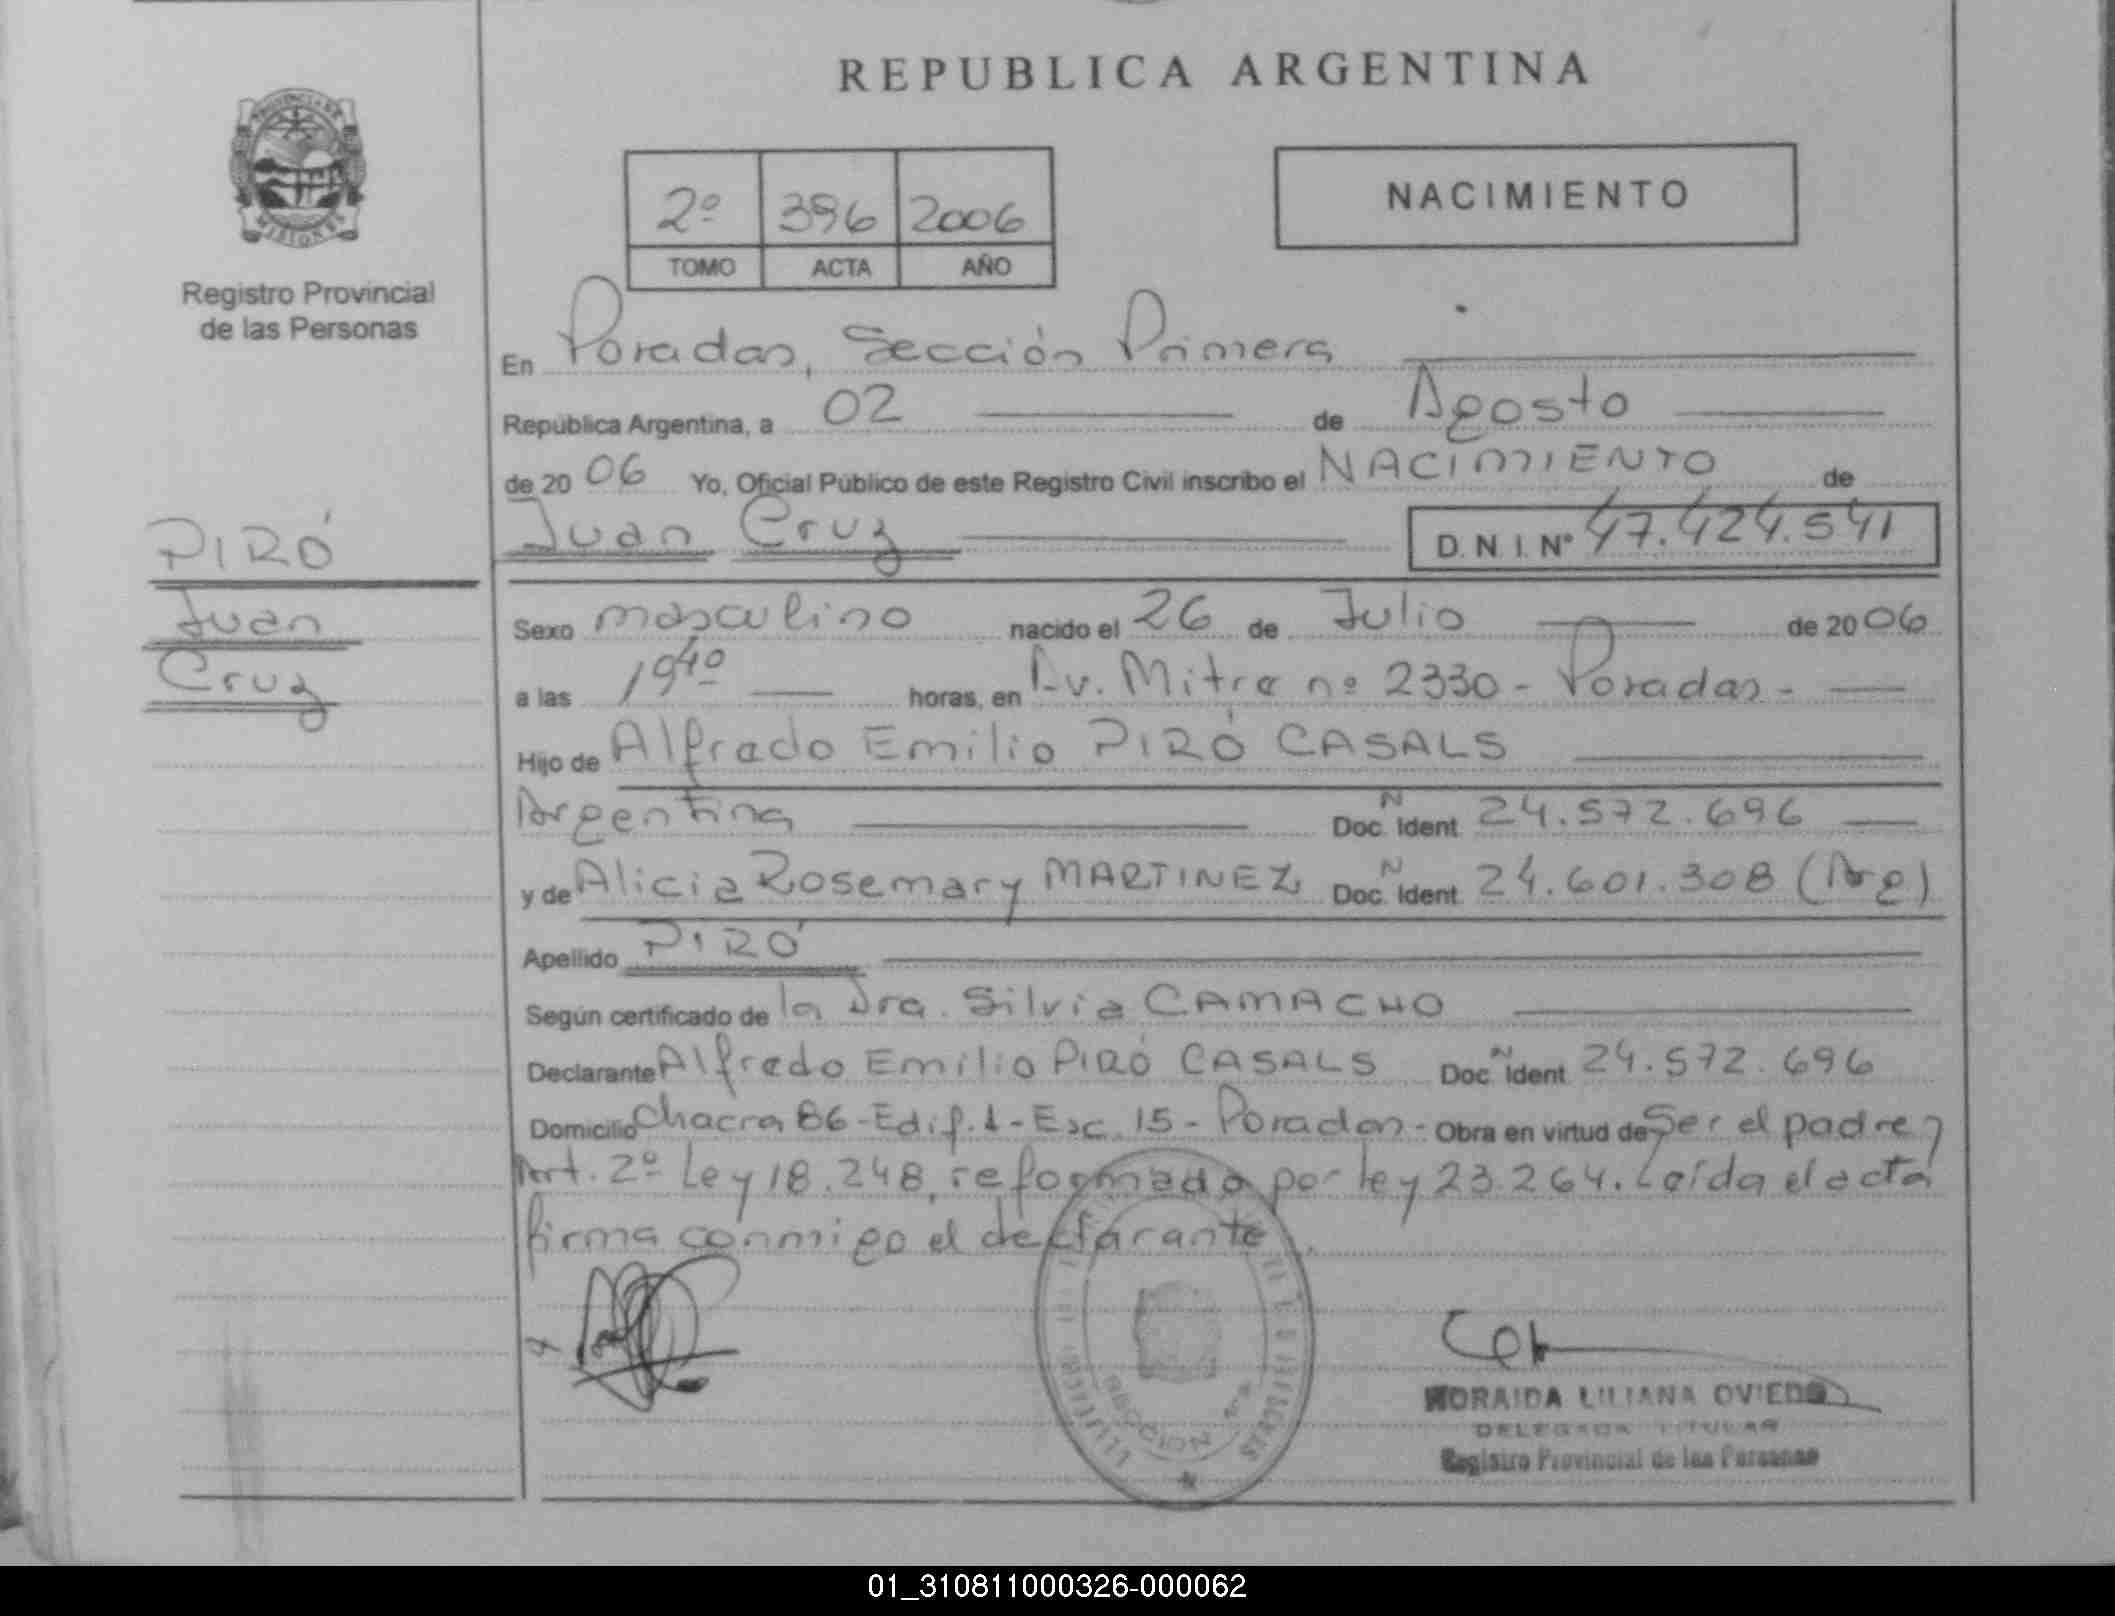 REPUBLICA ARGENTINA
PROVINCIA DE
MISIONES
Registro Provincial
de las Personas
2º 396 2006
TOMO ACTA AÑO
NACIMIENTO
En Posadas, Sección Primera
República Argentina, a 02 de Agosto
de 20 06 Yo, Oficial Público de este Registro Civil inscribo el NACIMIENTO de
Juan Cruz D. N. I. Nº 47.424.541
PIRÓ
Juan
Cruz
Sexo masculino nacido el 26 de Julio de 20 06
a las 19 40 horas, en Av. Mitre nº 2330 - Posadas -
Hijo de Alfredo Emilio PIRÓ CASALS
Argentina Doc. Ident N 24.572.696
y de Alicia Rosemary MARTINEZ Doc. Ident N 24.601.308 (Arg)
Apellido PIRÓ
Según certificado de la Dra. Silvia CAMACHO
Declarante Alfredo Emilio PIRÓ CASALS Doc. Ident N 24.572.696
Domicilio Chacra 86 - Edif. 1 - Esc. 15 - Posadas - Obra en virtud de Ser el padre y
Art. 2º Ley 18.248, reformado por ley 23.264. Leída el acta
firma conmigo el declarante.
SECCION 1ra
LILIANA OVIEDO
DELEGADA TITULAR
Registro Provincial de las Personas
01_310811000326-000062